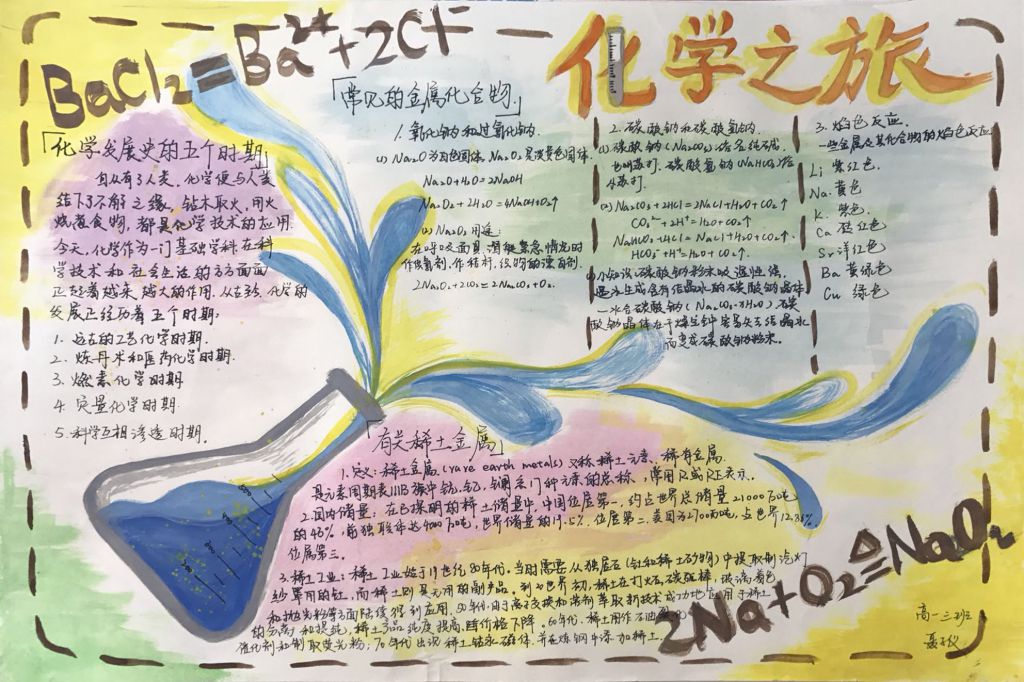 BaCl₂=Ba²⁺+2Cl⁻
化学之旅
「化学发展史的五个时期」
自从有了人类,化学便与人类
结下了不解之缘。钻木取火,用火
烧煮食物,都是化学技术的应用.
今天,化学作为一门基础学科在科
学技术和社会生活的方方面面
正起着越来越大的作用.从古至今,化学的
发展正经历着五个时期:
1. 远古的工艺化学时期.
2. 炼丹术和医药化学时期.
3. 燃素化学时期
4. 定量化学时期.
5. 科学互相渗透时期.
「常见的金属化合物.」
1. 氧化钠和过氧化钠.
(1) Na₂O为白色固体,Na₂O₂是淡黄色固体.
Na₂O+H₂O=2NaOH
Na₂O₂+2H₂O=4NaOH+O₂↑
(2) Na₂O₂用途:
在呼吸面具,潜艇紧急情况时
作供氧剂,作秸秆、织物的漂白剂.
2Na₂O₂+2CO₂=2Na₂CO₃+O₂.
2. 碳酸钠和碳酸氢钠.
(1) 碳酸钠(Na₂CO₃)俗名纯碱,
也叫苏打.碳酸氢钠(NaHCO₃)俗
名小苏打.
(2) Na₂CO₃+2HCl=2NaCl+H₂O+CO₂↑
CO₃²⁻+2H⁺=H₂O+CO₂↑
NaHCO₃+HCl=NaCl+H₂O+CO₂↑.
HCO₃⁻+H⁺=H₂O+CO₂↑.
小知识:碳酸钠粉末吸湿性结,
遇水生成含有结晶水的碳酸钠晶体
一水合碳酸钠(Na₂CO₃·H₂O).碳
酸钠晶体在干燥空气中容易失去结晶水
而变成碳酸钠粉末.
3. 焰色反应.
一些金属及其化合物的焰色反应
Li 紫红色.
Na. 黄色
K. 紫色.
Ca 砖红色
Sr 洋红色
Ba 黄绿色
Cu 绿色
「有关稀土金属」
1. 定义:稀土金属(rare earth metals)又称稀土元素、稀有金属.
是元素周期表IIIB族中钪、钇、镧系17种元素的总称,常用R或RE表示.
2. 国内储量:在已探明的稀土储量中,中国位居第一,约占世界总储量21000万吨
的43%,前独联体达4000万吨,世界储量的19.5%,位居第二,美国为2700万吨,占世界12.86%
位居第三.
3. 稀土工业:稀土工业始于19世纪80年代,当时需要从独居石(钍和稀土矿物)中提取制汽灯
纱罩用的钍,而稀土则是无用的副产品.到20世界初,稀土在打火石,碳弧棒,玻璃着色
和抛光粉等方面陆续得到应用.50年代,由于离子交换和溶剂萃取新技术成功地应用于稀土
的分离和提纯,稀土产品纯度提高,降价格下降.60年代,稀土用作石油裂化
催化剂和制取荧光粉;70年代出现稀土钴永磁体,并在炼钢中添加稀土.
2Na+O₂≜Na₂O₂
高一三班